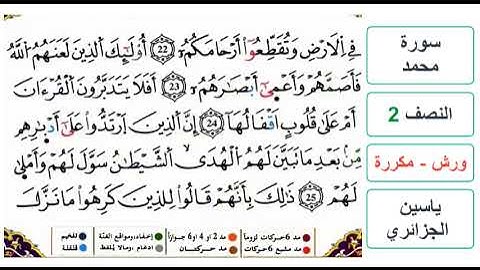 فِي اِ۬لَارْضِ وَتُقَطِّعُوٓاْ أَرْحَامَكُمُۥٓ 22 أُوْلَٰٓئِكَ اَ۬لذِينَ لَعَنَهُمُ اُ۬للَّهُ
فَأَصَمَّهُمْ وَأَعْم۪يٰٓ أَبْصَٰرَهُمُۥٓ 23 أَفَلَا يَتَدَبَّرُونَ اَ۬لْقُرْءَانَ
أَمْ عَلَىٰ قُلُوبٍ اَقْفَالُهَآ 24 إِنَّ اَ۬لذِينَ اَ۪رْتَدُّواْ عَلَىٰٓ أَدْبٰ۪رِهِم
مِّنۢ بَعْدِ مَا تَبَيَّنَ لَهُمُ اُ۬لْهُدَى اَ۬لشَّيْطَٰنُ سَوَّلَ لَهُمْ وَأَمْل۪يٰ
لَهُمْ 25 ذَٰلِكَ بِأَنَّهُمْ قَالُواْ لِلذِينَ كَرِهُواْ مَا نَزَّلَ
سورة
محمد
النصف 2
ورش - مكررة
ياسين
الجزائري
مد 6 حركات لزوماً
مد 2 أو 4 أو 6 جوازاً
إخفاء، ومواقع الغنّة
تفخيم
مد مشبع 6 حركات
مد حركتان
إدغام، وما لا يلفظ
قلقلة